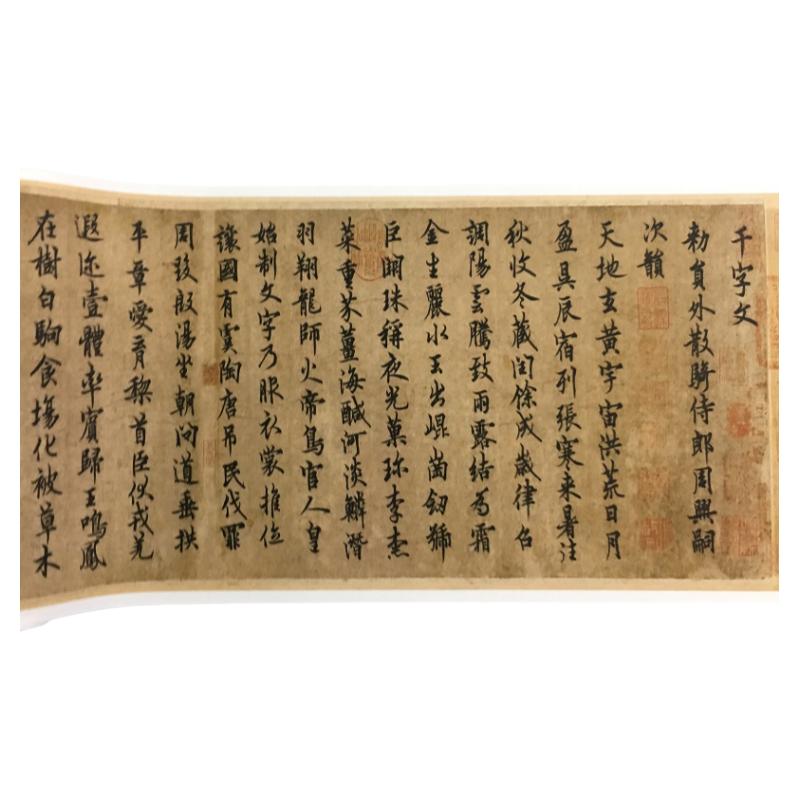 千字文
勑員外散騎侍郎周興嗣
次韻
天地玄黃宇宙洪荒日月
盈昃辰宿列張寒来暑往
秋收冬藏閏餘成歲律召
調陽雲騰致雨露結為霜
金生麗水玉出崐崗劒號
巨闕珠稱夜光菓珎李柰
菜重芥薑海醎河淡鱗潛
羽翔龍師火帝鳥官人皇
始制文字乃服衣裳推位
讓國有虞陶唐吊民伐罪
周發殷湯坐朝問道垂拱
平章愛育黎首臣伏戎羌
遐迩壹體率賓歸王鳴鳳
在樹白駒食場化被草木